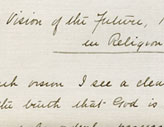 Vision of the Future,
in Religion
vision I see a clea
the truth that God is